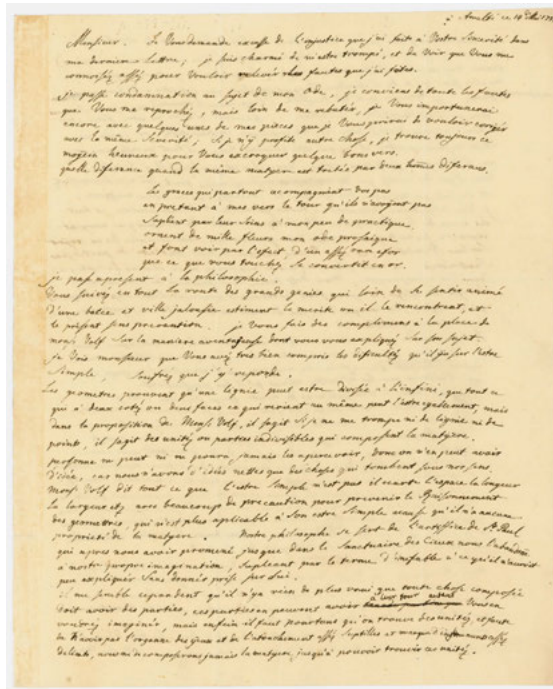 à Amalté ce 19 9bre 173
Monsieur. Je Vous demande excuse de l'injustice que j'ai fait à Votre sincerité dans
ma derniere lettre; je suis charmé de m'estre trompé, et de voir que Vous me
connoissés assés pour vouloir relever les fautes que j'ai faites.
je passe condamnation au sujet de mon Ode, je conviens de toute les fautes
que Vous me reprochés, mais loin de me rebuter, je Vous importunerai
encore avec quelques unes de mes pieces que je Vous prierai de vouloir coriger
avec la même severité, si je n'y profite autre chose, je trouve toujours ce
moyen heureux pour Vous escroquer quelque bons vers.
quelle diferance quand la même matyere est traitée par deux homes diferans.
les graces qui partout acompagnent vos pas
en pretant à mes vers le tour qu'ils n'avoyent pas
Supleent par leur soins à mon peu de practique.
ornent de mille fleurs mon ode prosaique
et font voir par l'efect, d'un assés rare efor
que ce que vous touchez se convertit en or.
je passe apresent à la philosophie.
Vous suivés en tout la route des grands genies qui loin de se sentir animé
d'une basse et ville jalousie estiment le merite ou il le rencontrent, et
le prisent sens prevention. je Vous fais des complimens à la place de
mons Volf sur la maniere avantageuse dont vous vous expliqués sur son sujet.
Je Vois monsieur que Vous avés tres bien compris les dificultés qu'il y a sur l'estre
Simple, soufres que j'y reponde.
Les geometres prouvent qu'une lignie peut estre divisée à l'infini, que tout ce
qui à deux cotés ou deux faces ce qui revient au même peut l'estre egalement, mais
dans la proposition de Mons Volf, il s'agit si je ne me trompe ni de lignie ni de
points, il s'agit des unités ou parties indivisibles qui composent la matyere.
personne ne peut ni ne poura jamais les apercevoir, donc on n'en peut avoir
d'idée, car nous n'avons d'idées nettes que des choses qui tombent sous nos sens.
Mons Volf dit tout ce que l'estre simple n'est pas il ecarte l'espace la longeur
la largeur etc avec beaucoup de precaution pour prevenir le Raisonement
des geometres, qui n'est plus aplicable à son estre simple
proprieté de la matyere. Nostre philosophe se sert de l'artifice de St Paul
qui apres nous avoir promené jusque dans le Sanctuaire des Cieux nous l'abandonne
à nostre propre imagination, supleant par le terme d'inefable à ce qu'il n'auroit
peu expliquer sans donner prise sur lui.
il me semble cepandent qu'il n'y a rien de plus vrai que toute chose composée
doit avoir des parties, ces parties en peuvent avoir à leur tour autant que Vous en
voudrés imaginer, mais enfin il faut pourtant qu'on trouve des unités, et faute
de n'avoir pas l'organe des yeux et de l'atouchement assés subtilles
delicats, nous ne decomposerons jamais la matyere, jusqu'à pouvoir trouver ces unités.